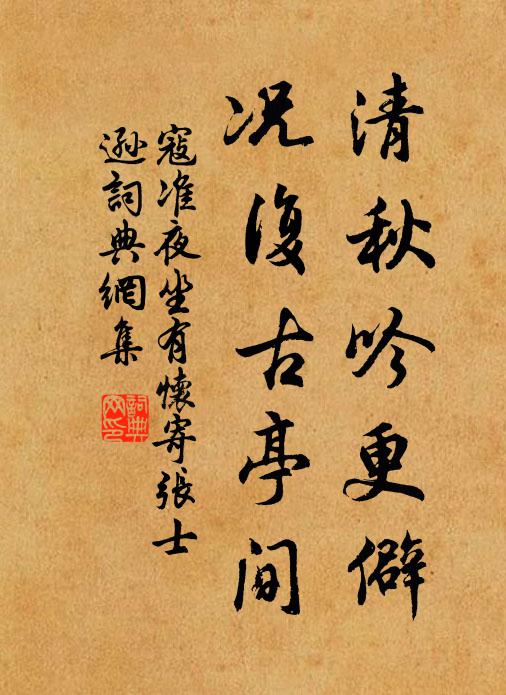 清秋吟更僻
况復古亭間
寇准夜坐有懷寄張士
遜詞典網集
詞典
网印